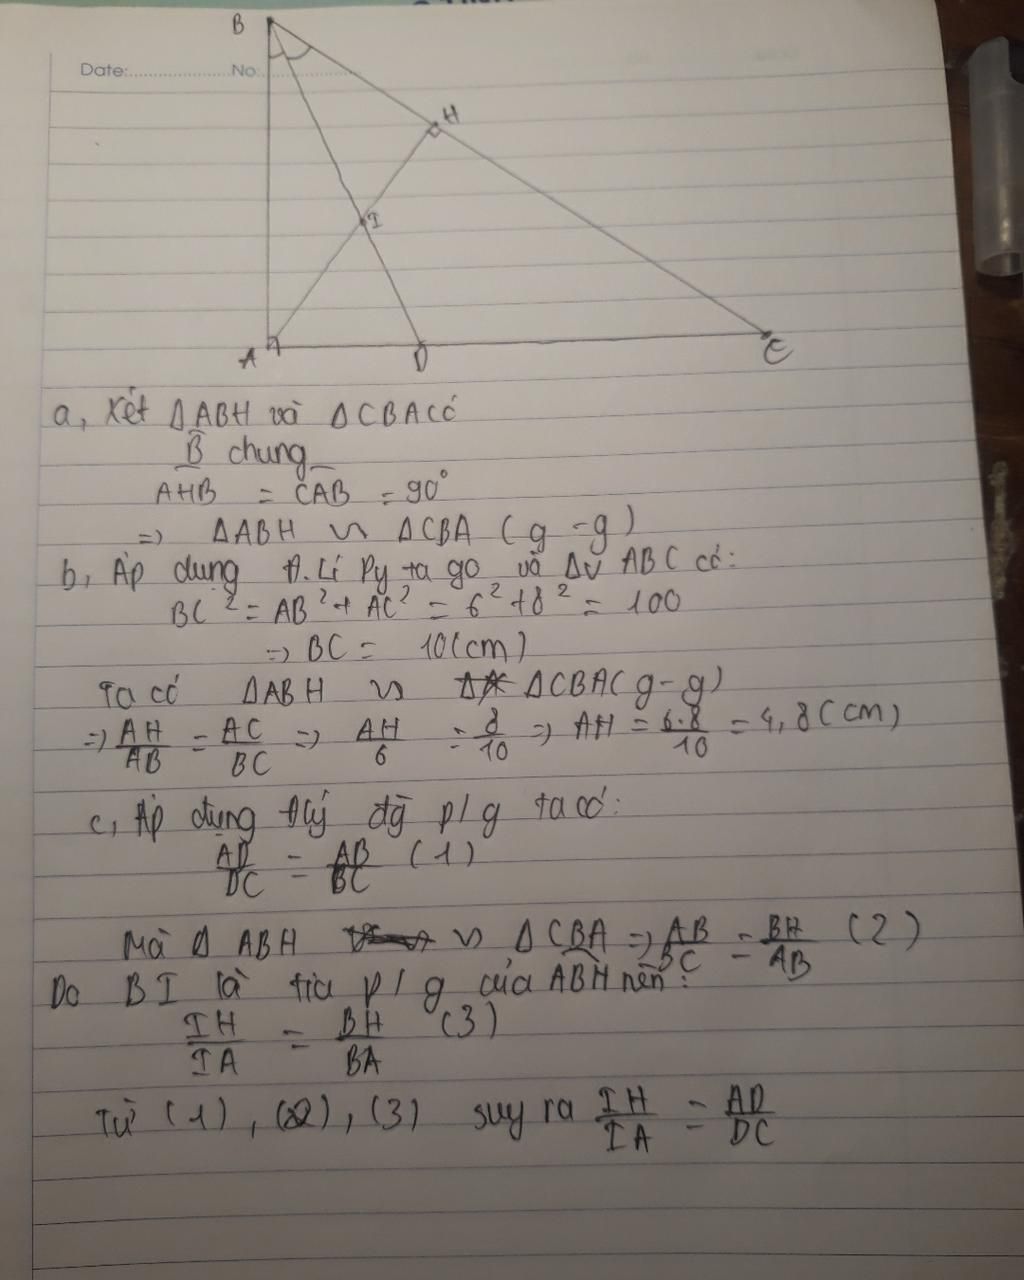 B
Date: No:
H
I
A D C
a, Xét ΔABH và ΔCBA có
B̂ chung
AHB = CAB = 90°
=> ΔABH ∽ ΔCBA (g-g)
b, Áp dụng Đ.Lí Py ta go và Δv ABC có:
BC² = AB² + AC² = 6² + 8² = 100
=> BC = 10(cm)
Ta có ΔABH ∽ ΔCBA(g-g)
=> AH/AB = AC/BC => AH/6 = 8/10 => AH = 6.8/10 = 4,8(cm)
c, Áp dụng đlý đg p/g ta có:
AD/DC = AB/BC (1)
Mà Δ ABH ∽ ΔCBA => AB/BC = BH/AB (2)
Do BI là tia p/g của ABH nên:
IH/IA = BH/BA (3)
Từ (1), (2), (3) suy ra IH/IA = AD/DC